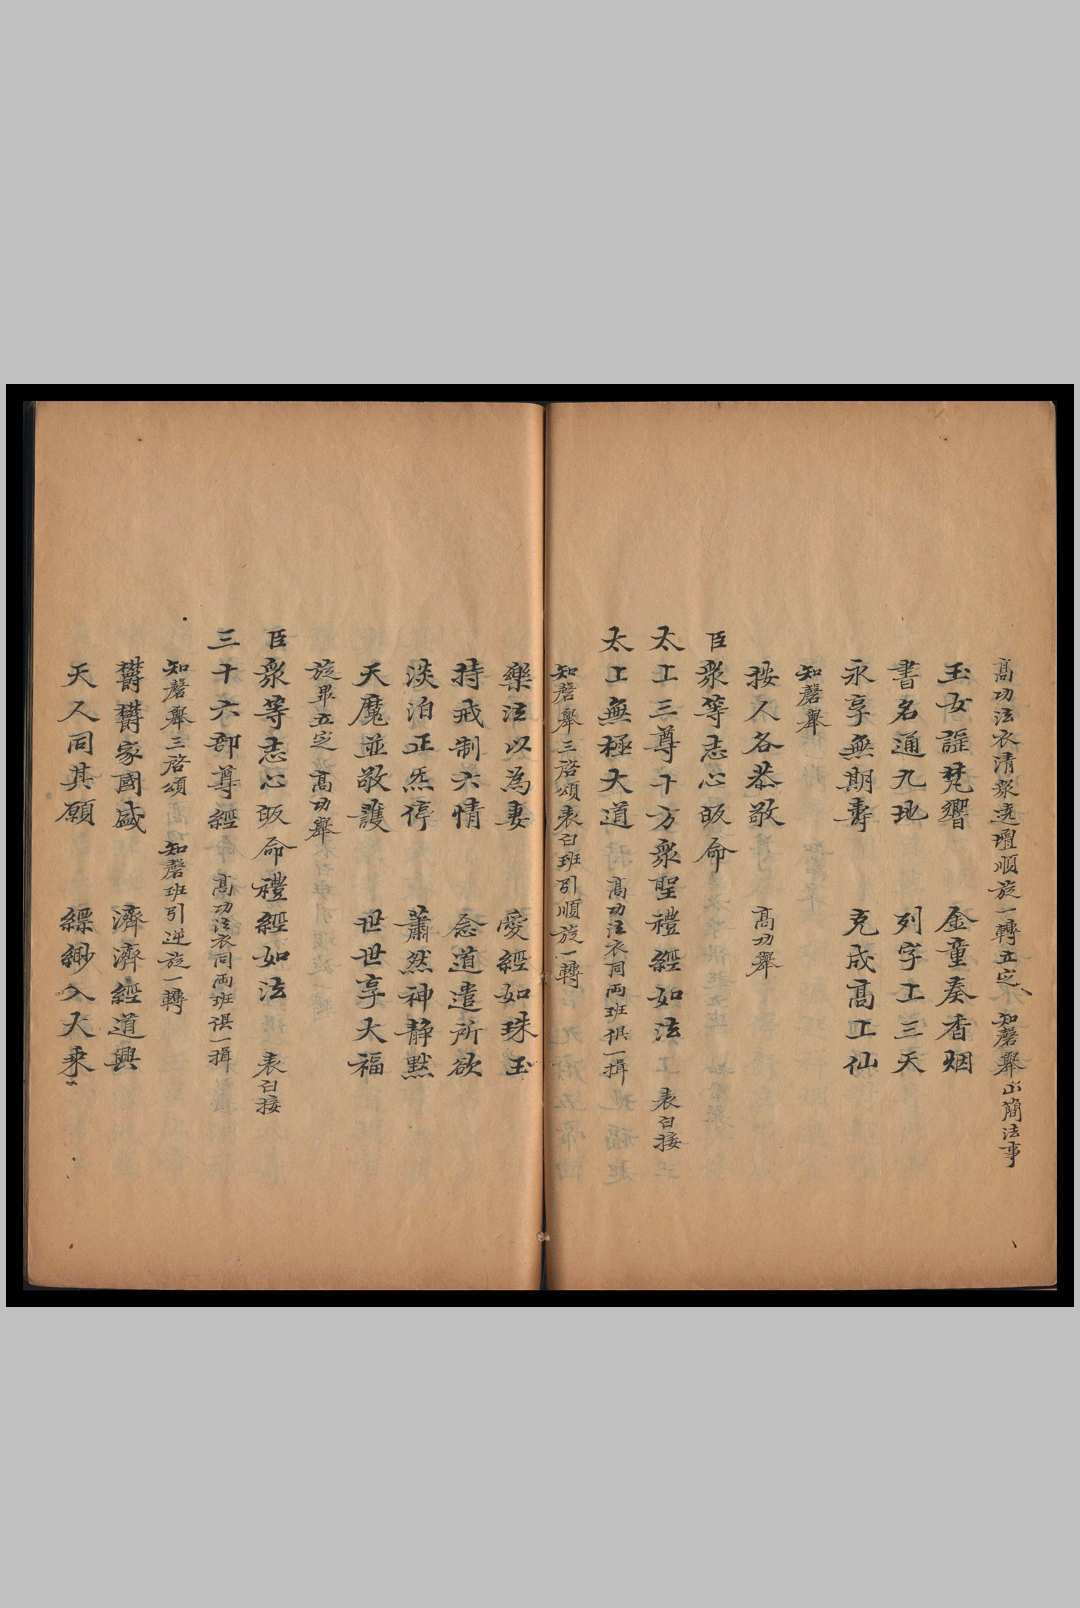 高功法衣清眾遶壇順旋一轉立定 知磬舉出簡法事
玉女謡梵響 金童奏香烟
書名通九地 列字上三天
永享無期壽 克成高上仙
知磬舉
按人各恭敬 高功舉
臣眾等志心皈命
太上三尊十方眾聖禮經如法 表白接
太上無極大道 高功法衣同両班俱一揖
知磬舉三啓頌表白班引順旋一轉
樂法以為妻 愛經如珠玉
持戒制六情 念道遣所欲
淡泊正炁停 蕭然神靜黙
天魔並敬護 世世享大福
旋畢立定 高功舉
臣眾等志心皈命禮經如法 表白接
三十六部尊經 高功法衣同両班俱一揖
知磬舉三啓頌 知磬班引逆旋一轉
欝欝家國盛 濟濟經道興
天人同其願 縹緲入大乘